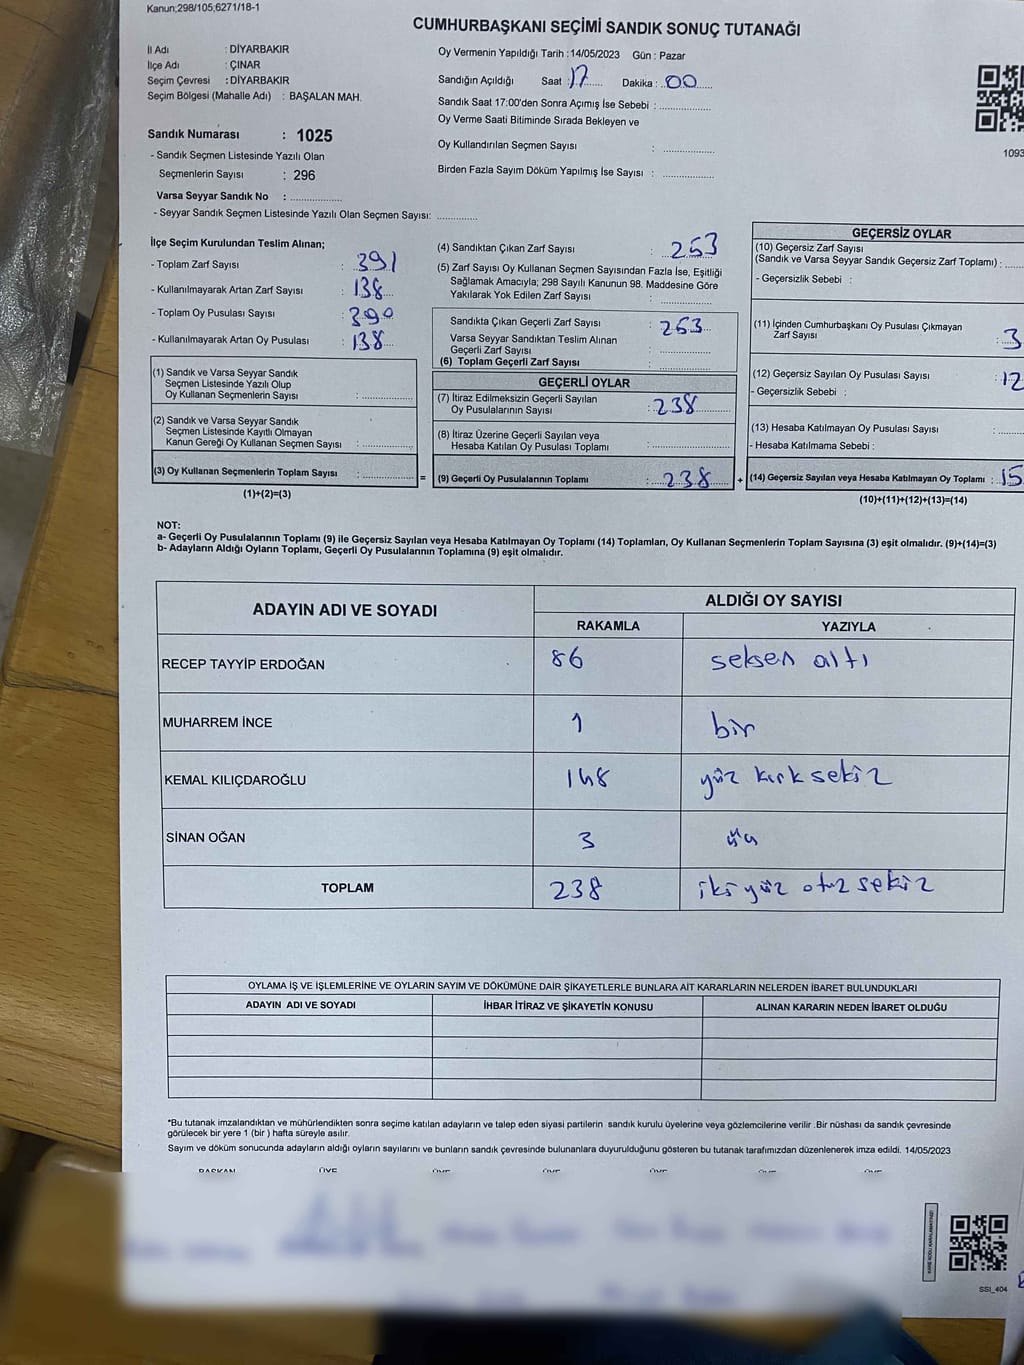 Kanun;298/105;6271/18-1
CUMHURBAŞKANI SEÇİMİ SANDIK SONUÇ TUTANAĞI
İl Adı : DİYARBAKIR
İlçe Adı : ÇINAR
Seçim Çevresi : DİYARBAKIR
Seçim Bölgesi (Mahalle Adı) : BAŞALAN MAH.
Sandık Numarası : 1025
- Sandık Seçmen Listesinde Yazılı Olan
Seçmenlerin Sayısı : 296
Varsa Seyyar Sandık No : ................
- Seyyar Sandık Seçmen Listesinde Yazılı Olan Seçmen Sayısı: ............
Oy Vermenin Yapıldığı Tarih :14/05/2023 Gün : Pazar
Sandığın Açıldığı Saat : 17 Dakika : 00
Sandık Saat 17:00'den Sonra Açımış İse Sebebi : ................
Oy Verme Saati Bitiminde Sırada Bekleyen ve
Oy Kullandırılan Seçmen Sayısı : ................
Birden Fazla Sayım Döküm Yapılmış İse Sayısı : ................
1093
İlçe Seçim Kurulundan Teslim Alınan;
- Toplam Zarf Sayısı : 391
- Kullanılmayarak Artan Zarf Sayısı : 138
- Toplam Oy Pusulası Sayısı : 390
- Kullanılmayarak Artan Oy Pusulası : 138
(1) Sandık ve Varsa Seyyar Sandık
Seçmen Listesinde Yazılı Olup
Oy Kullanan Seçmenlerin Sayısı : ................
(2) Sandık ve Varsa Seyyar Sandık
Seçmen Listesinde Kayıtlı Olmayan
Kanun Gereği Oy Kullanan Seçmen Sayısı : ................
(3) Oy Kullanan Seçmenlerin Toplam Sayısı : ................
(1)+(2)=(3)
(4) Sandıktan Çıkan Zarf Sayısı : 253
(5) Zarf Sayısı Oy Kullanan Seçmen Sayısından Fazla İse, Eşitliği
Sağlamak Amacıyla; 298 Sayılı Kanunun 98. Maddesine Göre
Yakılarak Yok Edilen Zarf Sayısı : ................
Sandıkta Çıkan Geçerli Zarf Sayısı : 253
Varsa Seyyar Sandıktan Teslim Alınan
Geçerli Zarf Sayısı : ................
(6) Toplam Geçerli Zarf Sayısı : ................
GEÇERLİ OYLAR
(7) İtiraz Edilmeksizin Geçerli Sayılan
Oy Pusulalarının Sayısı : 238
(8) İtiraz Üzerine Geçerli Sayılan veya
Hesaba Katılan Oy Pusulası Toplamı : ................
= (9) Geçerli Oy Pusulalarının Toplamı : 238 +
GEÇERSİZ OYLAR
(10) Geçersiz Zarf Sayısı
(Sandık ve Varsa Seyyar Sandık Geçersiz Zarf Toplamı) : ....
- Geçersizlik Sebebi :
(11) İçinden Cumhurbaşkanı Oy Pusulası Çıkmayan
Zarf Sayısı : 3
(12) Geçersiz Sayılan Oy Pusulası Sayısı : 12
- Geçersizlik Sebebi :
(13) Hesaba Katılmayan Oy Pusulası Sayısı : ......
- Hesaba Katılmama Sebebi :
(14) Geçersiz Sayılan veya Hesaba Katılmayan Oy Toplamı : 15
(10)+(11)+(12)+(13)=(14)
NOT:
a- Geçerli Oy Pusulalarının Toplamı (9) ile Geçersiz Sayılan veya Hesaba Katılmayan Oy Toplamı (14) Toplamları, Oy Kullanan Seçmenlerin Toplam Sayısına (3) eşit olmalıdır. (9)+(14)=(3)
b- Adayların Aldığı Oyların Toplamı, Geçerli Oy Pusulalarının Toplamına (9) eşit olmalıdır.
ADAYIN ADI VE SOYADI ALDIĞI OY SAYISI
RAKAMLA YAZIYLA
RECEP TAYYİP ERDOĞAN 86 seksen altı
MUHARREM İNCE 1 bir
KEMAL KILIÇDAROĞLU 148 yüz kırk sekiz
SİNAN OĞAN 3 üç
TOPLAM 238 iki yüz otuz sekiz
OYLAMA İŞ VE İŞLEMLERİNE VE OYLARIN SAYIM VE DÖKÜMÜNE DAİR ŞİKAYETLERLE BUNLARA AİT KARARLARIN NELERDEN İBARET BULUNDUKLARI
ADAYIN ADI VE SOYADI İHBAR İTİRAZ VE ŞİKAYETİN KONUSU ALINAN KARARIN NEDEN İBARET OLDUĞU
*Bu tutanak imzalandıktan ve mühürlendikten sonra seçime katılan adayların ve talep eden siyasi partilerin sandık kurulu üyelerine veya gözlemcilerine verilir .Bir nüshası da sandık çevresinde
görülecek bir yere 1 (bir ) hafta süreyle asılır.
Sayım ve döküm sonucunda adayların aldığı oyların sayılarını ve bunların sandık çevresinde bulunanlara duyurulduğunu gösteren bu tutanak tarafımızdan düzenlenerek imza edildi. 14/05/2023
BAŞKAN ÜYE ÜYE ÜYE ÜYE ÜYE ÜYE
SSI_404